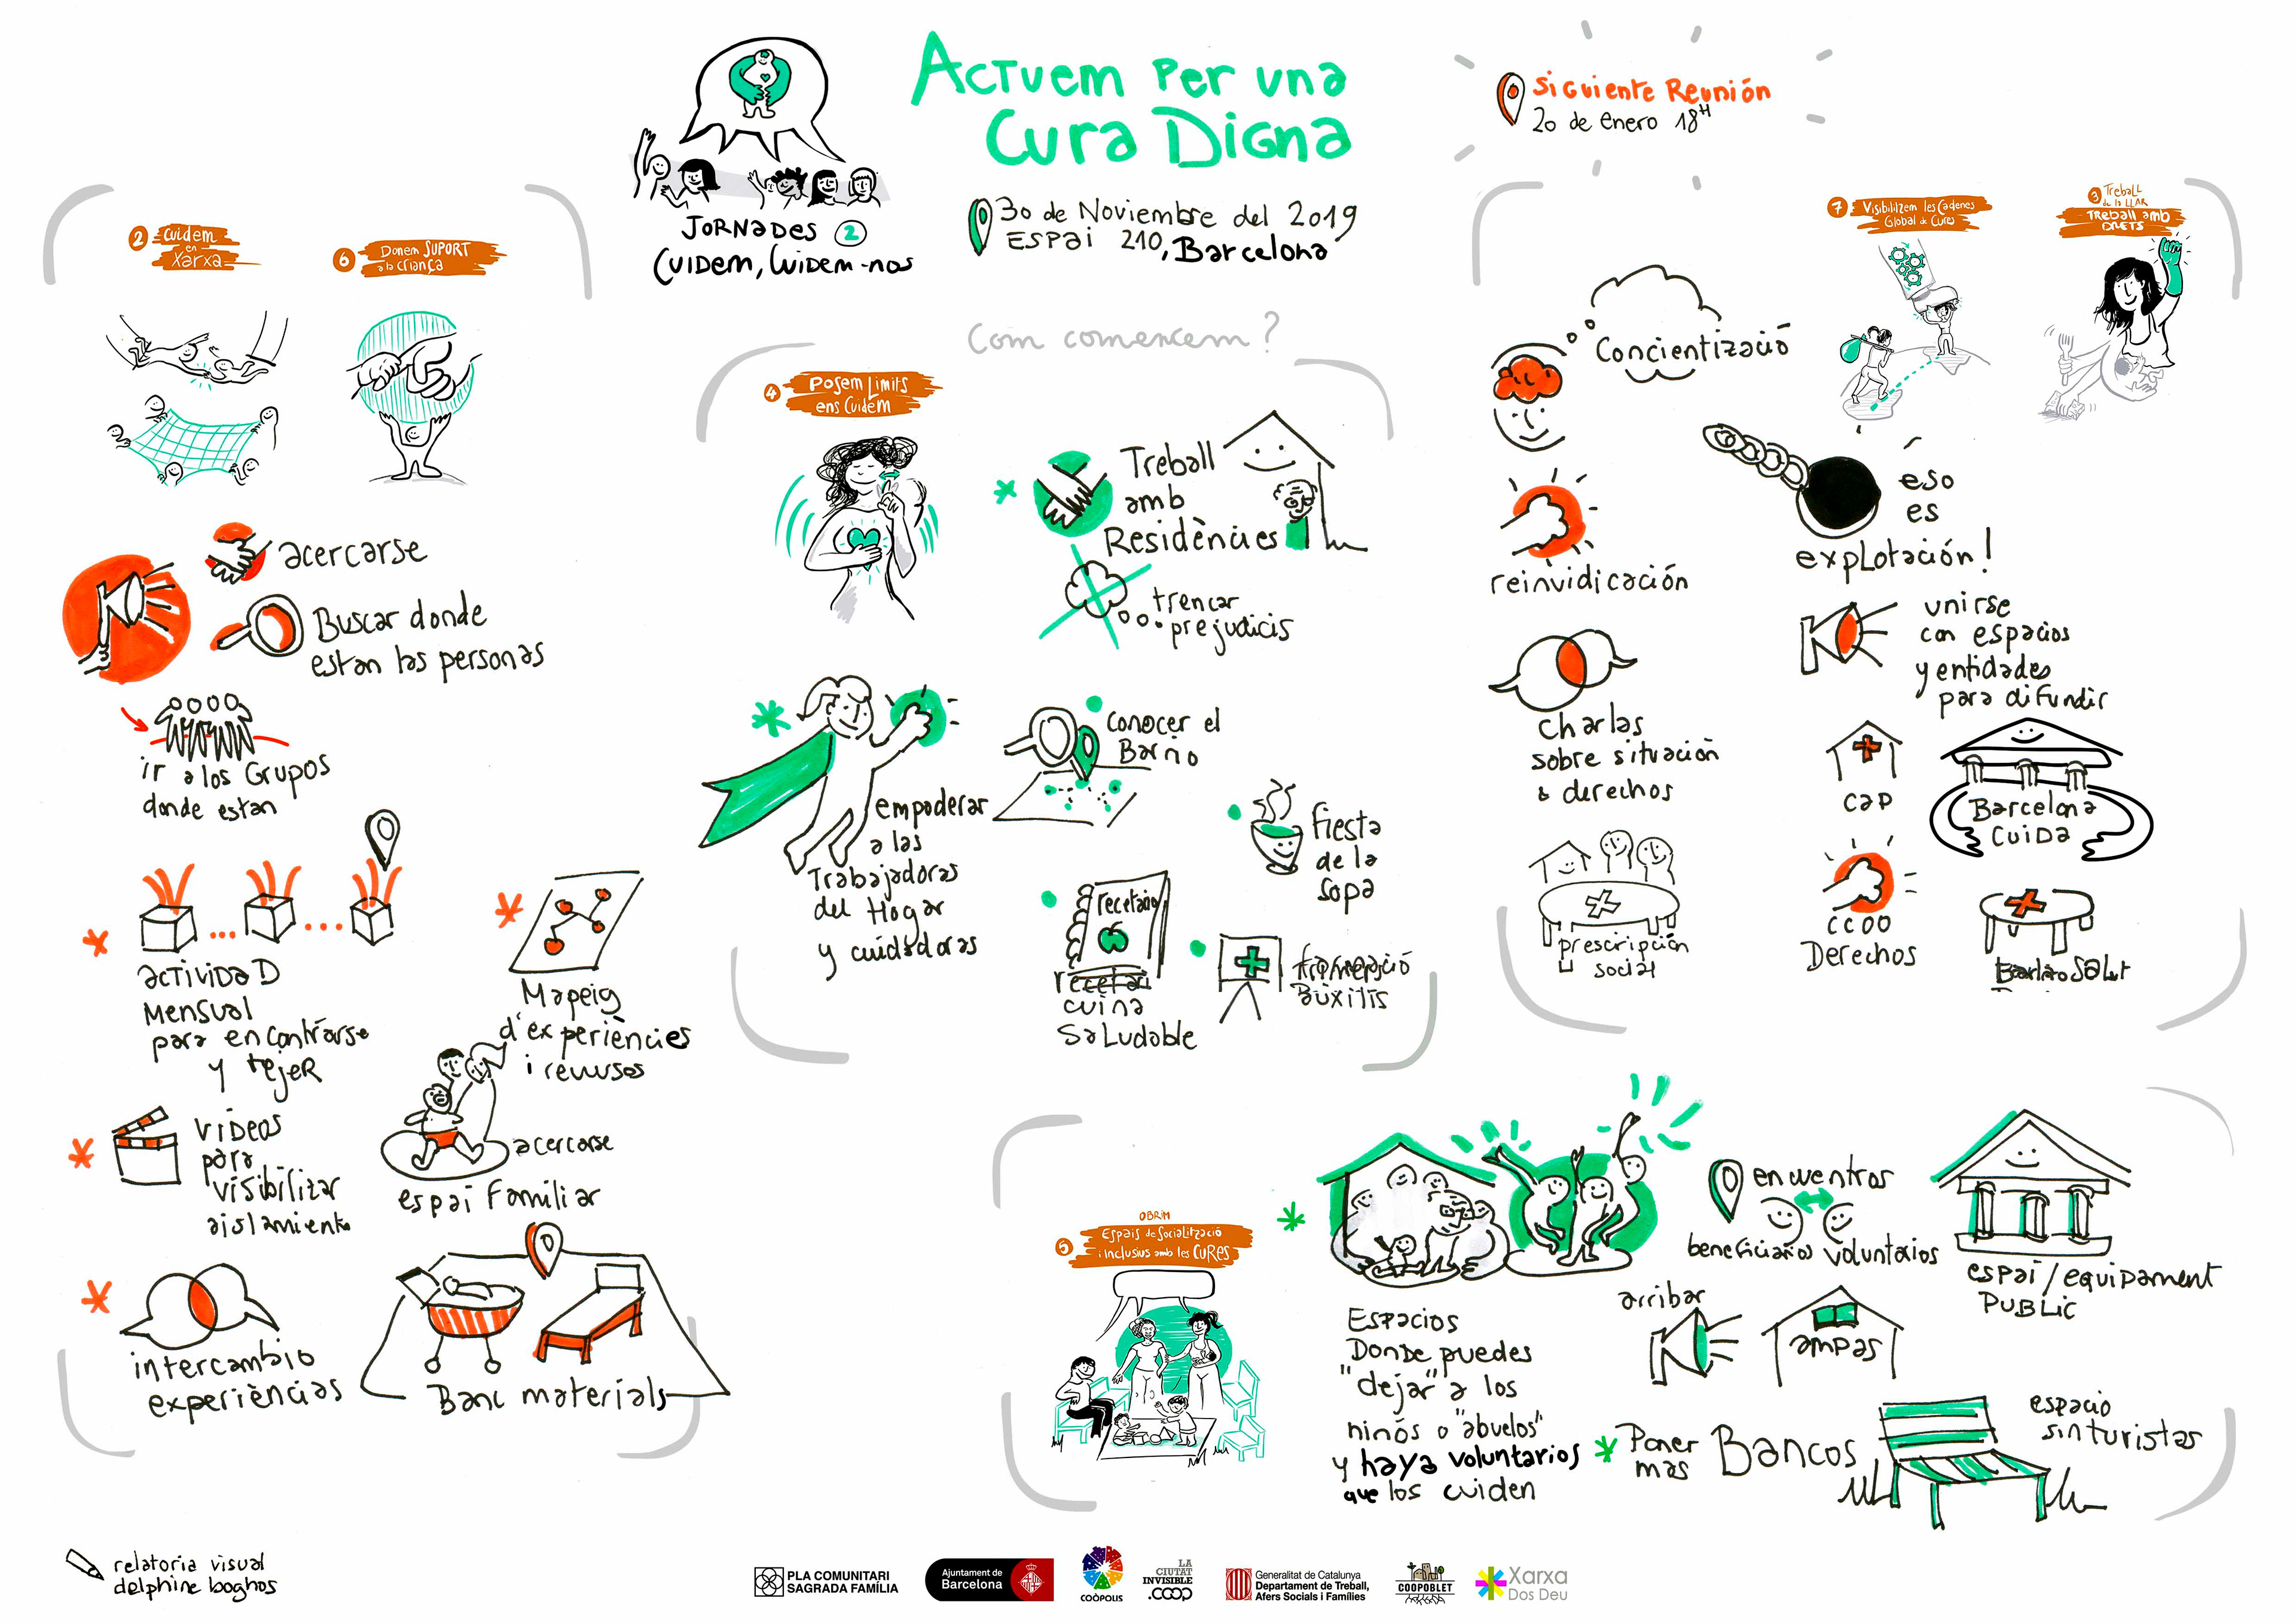 Actuem Per una
Cura Digna
30 de Noviembre del 2019
ESPAi 210, Barcelona
JORNADES 2
CUIDEM, Cuidem-nos
Siguiente Reunión
20 de enero 18H
2 Cuidem
en
Xarxa
6 Donem SUPORT
a la criança
acercarse
Buscar donde
estan las personas
ir a los Grupos
donde estan
actividaD
Mensual
para encontrarse
y tejer
Mapeig
d'experiències
i recursos
Videos
para
visibilizar
aislamiento
acercarse
espai Familiar
intercambio
experiències
Banc materials
Com comencem?
4 Posem Límits
ens Cuidem
Treball
amb
Residències
trencar
prejudicis
empoderar
a las
Trabajadoras
del Hogar
y cuidadoras
Conocer el
Barrio
fiesta
de la
sopa
recetario
cuina
Saludable
auxilis
7 Visibilitzem les Cadenes
Global de Cures
3 Treball
de la LLAR
Treball amb
DRETS
Concientizació
reinvidicación
eso
es
explotación!
unirse
con espacios
y entidades
para difundir
charlas
sobre situación
& derechos
cap
Barcelona
CuiDa
prescripción
social
CCOO
Derechos
Salut
OBRIM
5 Espais de Socialització
i inclusius amb les CURES
Espacios
Donde puedes
"dejar" a los
ninós o "abuelos"
y haya voluntarios
que los cuiden
encuentros
beneficiarios voluntarios
espai/equipament
PUBLic
arribar
ampas
Poner
mas Bancos
espacio
sin turistas
relatoria visual
delphine boghos
PLA COMUNITARI
SAGRADA FAMÍLIA
Ajuntament de
Barcelona
COÒPOLIS
LA
CIUTAT
INVISIBLE
.COOP
Generalitat de Catalunya
Departament de Treball,
Afers Socials i Famílies
COOPOBLET
Xarxa
Dos Deu